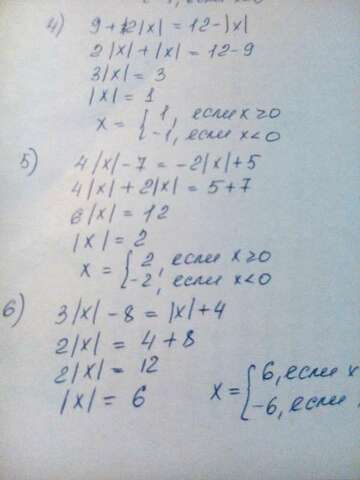 4) 9+2|x| = 12-|x|
2|x|+|x| = 12-9
3|x| = 3
|x| = 1
x = { 1, если x≥0
-1, если x<0
5) 4|x|-7 = -2|x|+5
4|x|+2|x| = 5+7
6|x| = 12
|x| = 2
x = { 2, если x≥0
-2, если x<0
6) 3|x|-8 = |x|+4
2|x| = 4+8
2|x| = 12
|x| = 6
x = { 6, если x
-6, если